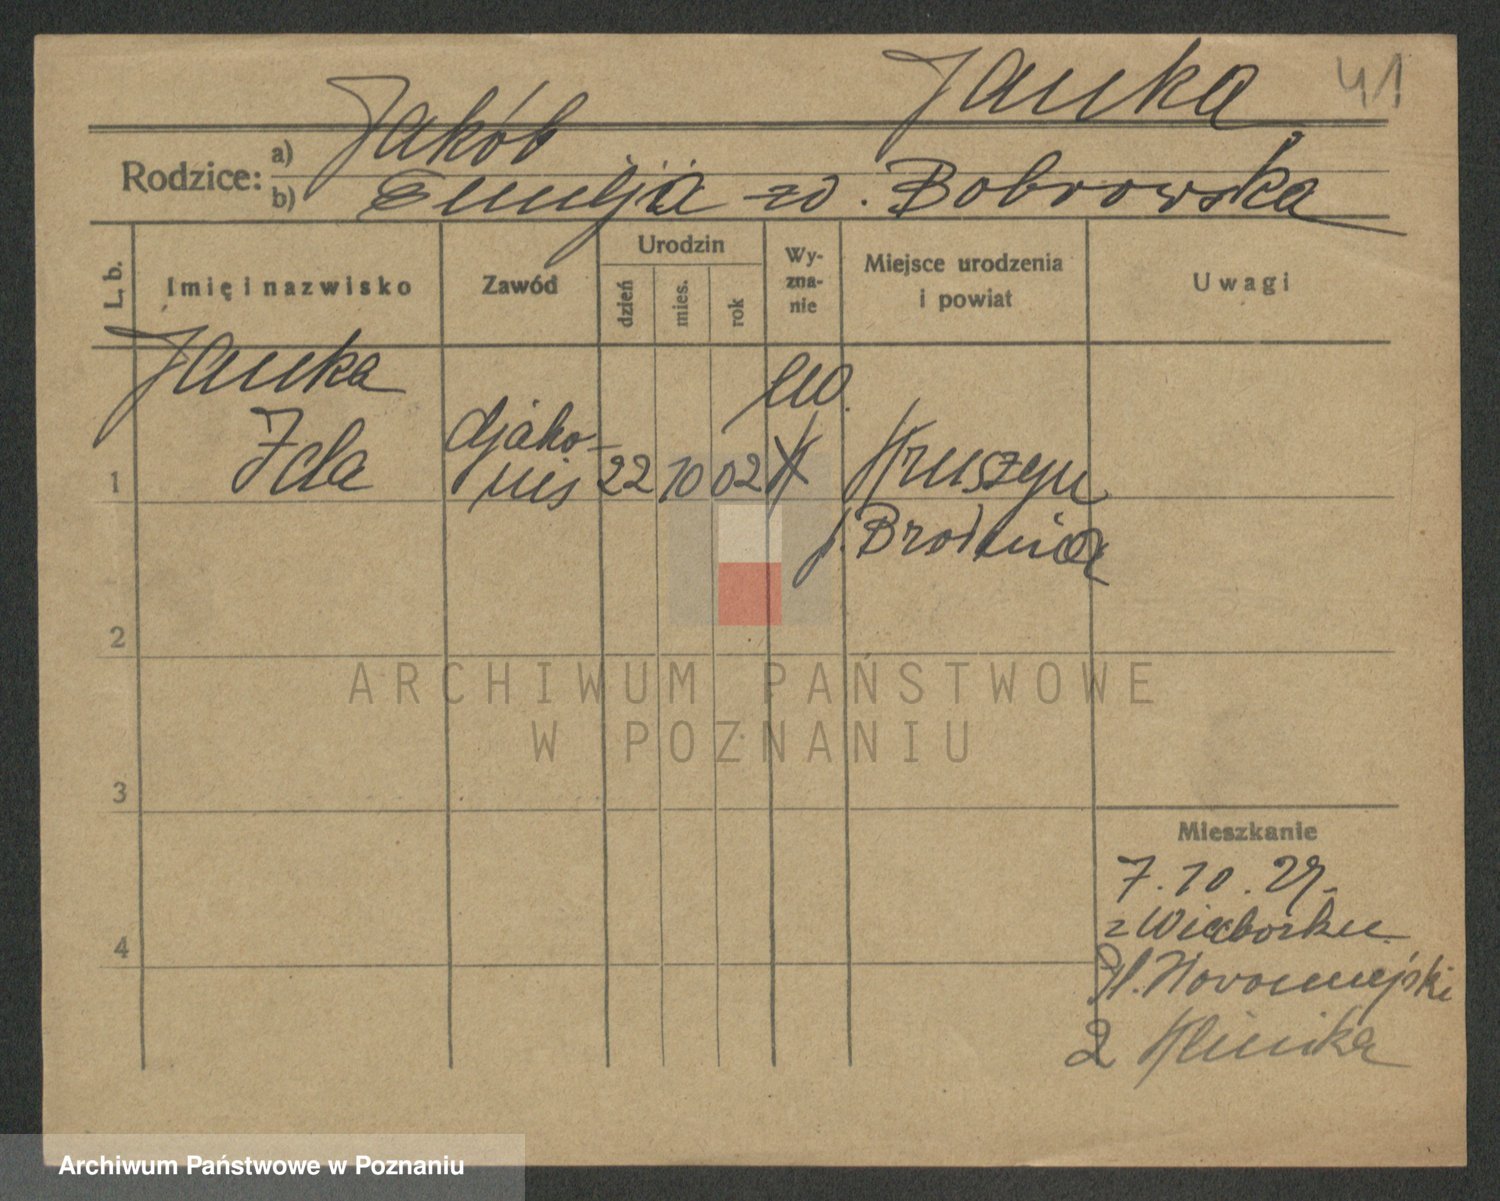 Janka 41
Rodzice:
a) Jakób
b) Emilja zd. Bobrowska
L. b.
Imię i nazwisko
Zawód
Urodzin
dzień
mies.
rok
Wy-
zna-
nie
Miejsce urodzenia
i powiat
Uwagi
Janka
Ida
djako-
nis
22 10 02
ew.
Kruszyn
p. Brodnica
1
2
3
4
Mieszkanie
7. 10. 29.
z Więcborku
Pl. Nowomiejski
2 Klinika
ARCHIWUM PAŃSTWOWE
W POZNANIU
Archiwum Państwowe w Poznaniu